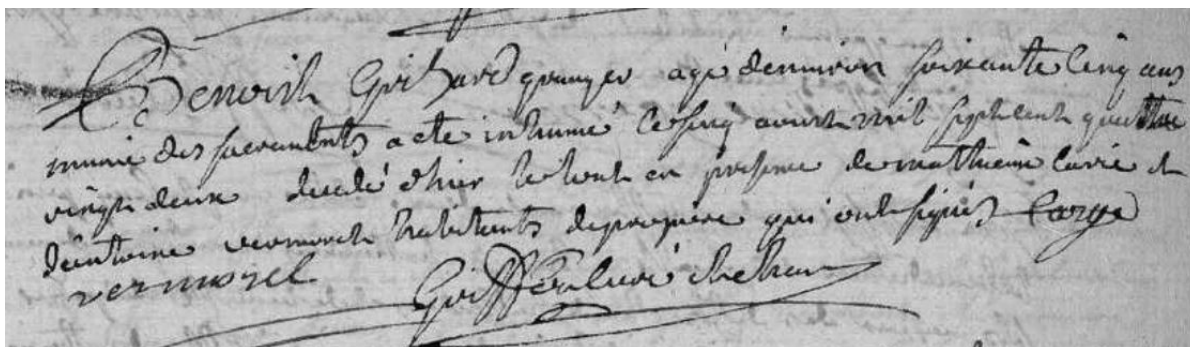 Benoist Guichard granger agé d'environ soixante cinq ans
munie des sacraments a été inhumé le cinq aoust mil sept cent quattre
vingt deux decedé d'hier le tout en presence de mathieu et
d'antoine vermorel habitants de propière qui ont signés
vermorel curé